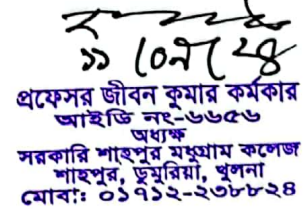 প্রফেসর জীবন কুমার কর্মকার
আইডি নং-৬৬৫৬
অধ্যক্ষ
সরকারি শাহপুর মধুগ্রাম কলেজ
শাহপুর, ডুমুরিয়া, খুলনা
মোবা:: ০১৭১২-২৩৮৮২৪